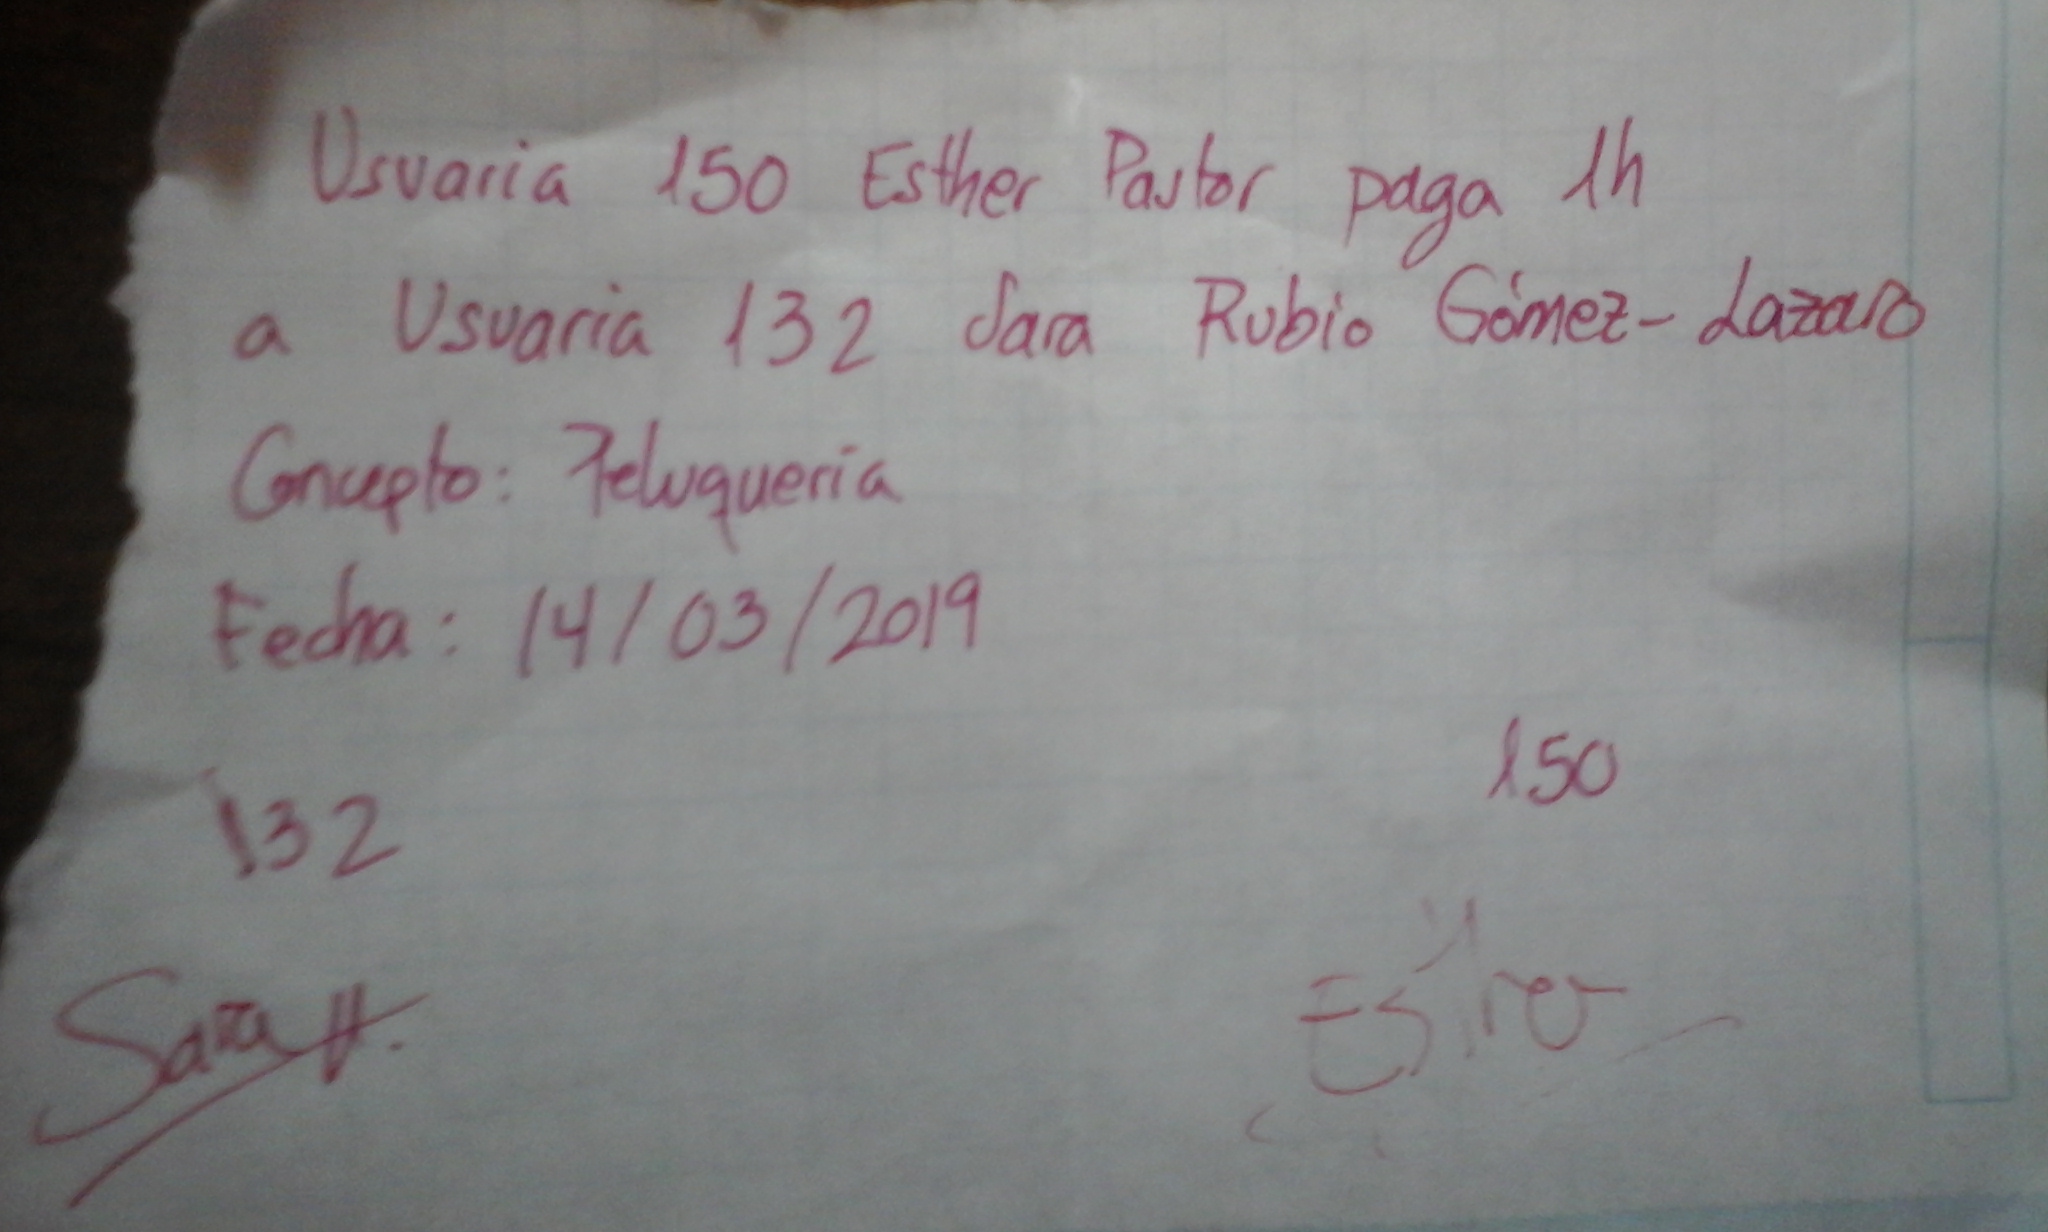 Usuaria 150 Esther Pastor paga 1h
a Usuaria 132 Sara Rubio Gómez-Lazaro
Concepto: Peluqueria
Fecha: 14/03/2019
150
132
Sara
Esther